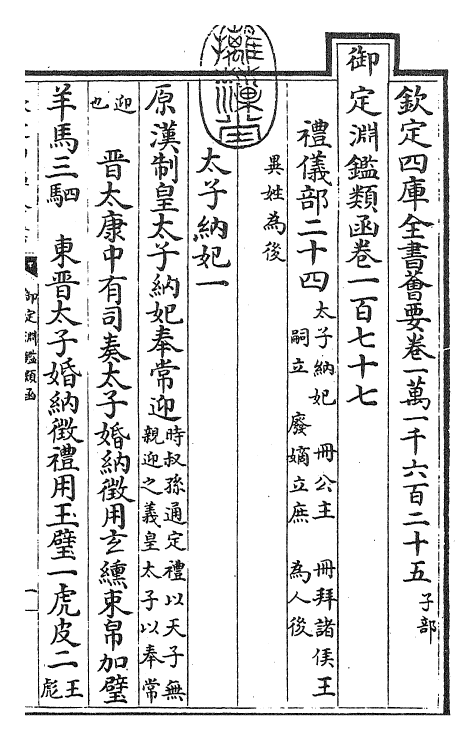 欽定四庫全書薈要卷一萬一千六百二十五 子部
御定淵鑑類函卷一百七十七
禮儀部二十四 太子納妃 冊公主 冊拜諸侯王
嗣立 廢嫡立庶 為人後
異姓為後
太子納妃一
原漢制皇太子納妃奉常迎 時叔孫通定禮以天子無
親迎之義皇太子以奉常
迎也 晉太康中有司奏太子婚納徵用玄纁束帛加璧
羊馬三駟 東晉太子婚納徵禮用玉璧一虎皮二 王彪
御定淵鑑類函